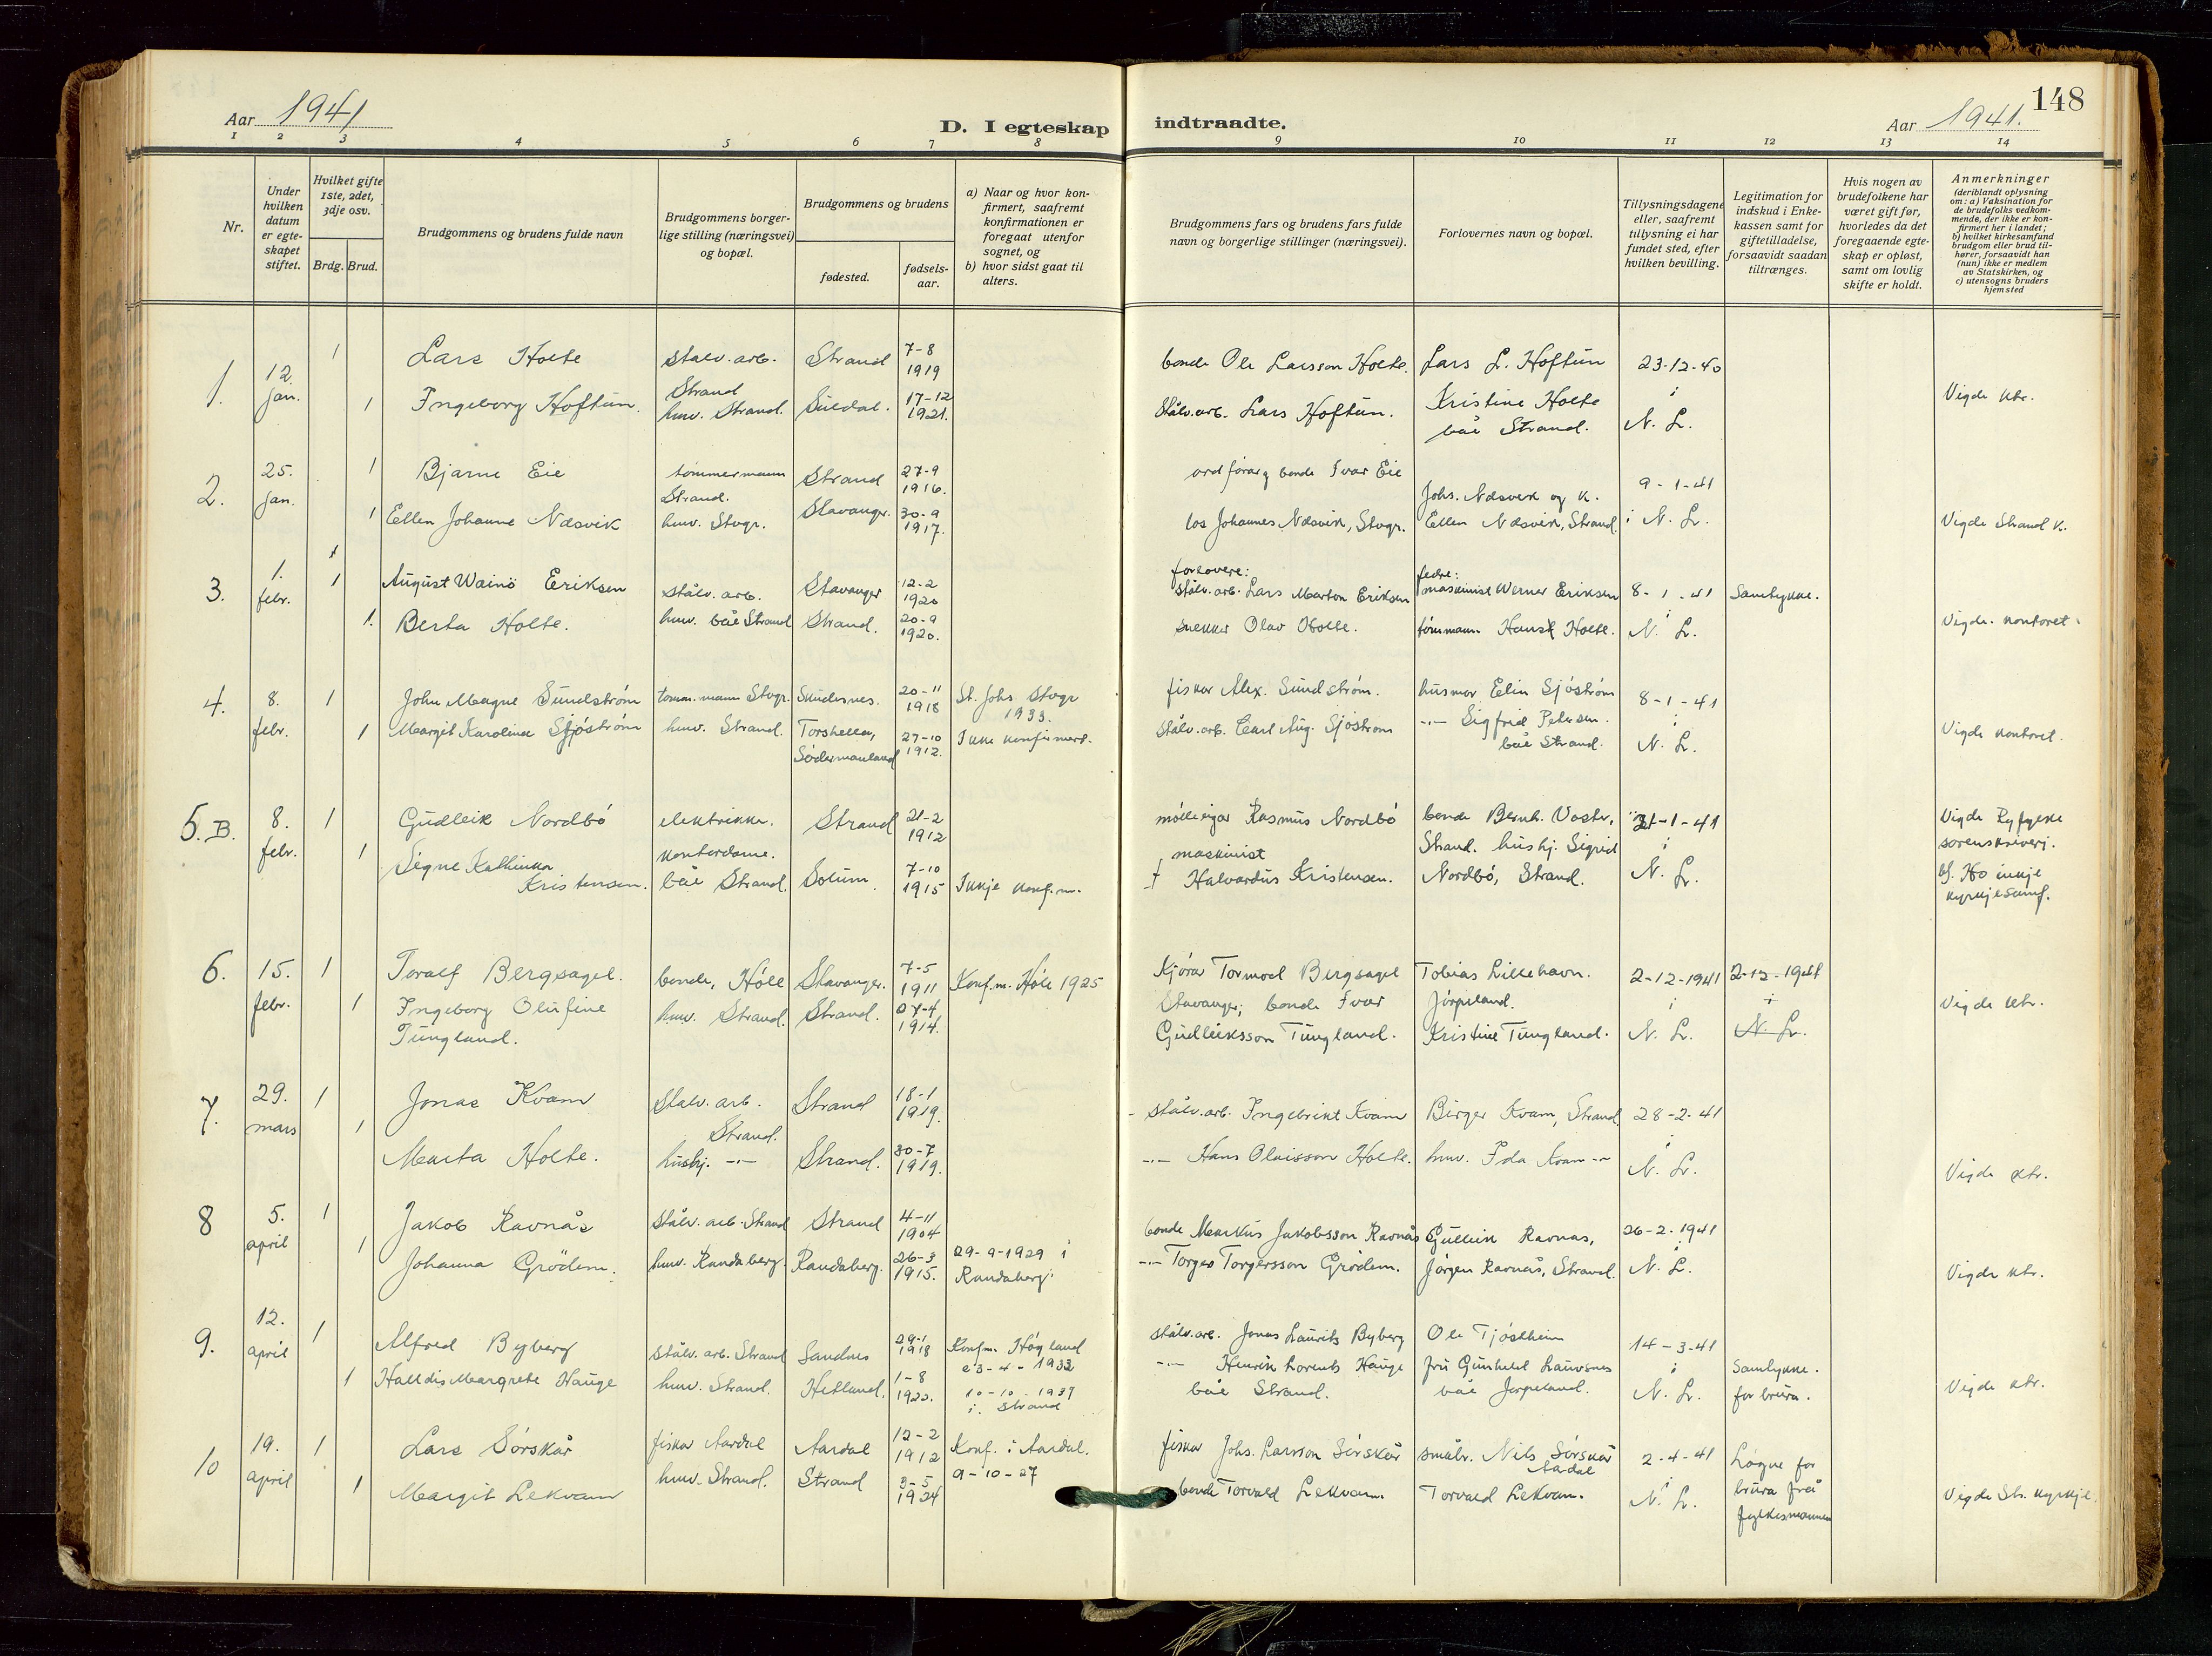 148
Aar 1941
D. I egteskap indtraadte.
Aar 1941.
1 2 3 4 5 6 7 8 9 10 11 12 13 14
Nr.
Under hvilken datum er egte-skapet stiftet.
Hvilket gifte 1ste, 2det, 3dje osv.
Brdg. Brud.
Brudgommens og brudens fulde navn
Brudgommens borger-lige stilling (næringsvei) og bopæl.
Brudgommens og brudens
fødested.
fødsels-aar.
a) Naar og hvor kon-firmert, saafremt konfirmationen er foregaat utenfor sognet, og
b) hvor sidst gaat til alters.
Brudgommens fars og brudens fars fulde navn og borgerlige stillinger (næringsvei).
Forlovernes navn og bopæl.
Tillysningsdagene eller, saafremt tillysning ei har fundet sted, efter hvilken bevilling.
Legitimation for indskud i Enke-kassen samt for giftetilladelse, forsaavidt saadan tiltrænges.
Hvis nogen av brudefolkene har været gift før, hvorledes da det foregaaende egte-skap er opløst, samt om lovlig skifte er holdt.
Anmerkninger
(deriblandt oplysning om: a) Vaksination for de brudefolks vedkom-mende, der ikke er kon-firmert her i landet; b) hvilket kirkesamfund brudgom eller brud til-hører, forsaavidt han (hun) ikke er medlem av Statskirken, og c) utensogns bruders hjemsted
1. 12. jan. 1 Lars Holte stålv. arb. Strand Strand 7-8 1919 bonde Ole Larsson Holte. Lars L. Hoftun 23-12-40
1 Ingeborg Hoftun. husv. Strand. Suldal. 17-12 1921. Stålv. arb. Lars Hoftun. Kristine Holte båe Strand. i N. L. Vigde ktr.
2. 25. jan. 1 Bjarne Eie tømmermann Strand. Strand 27-9 1916. ordførar og bonde Ivar Eie Johs. Næsvik og k. 9-1-41
1 Ellen Johanne Næsvik husv. Stvgr. Stavanger. 30-9 1917. los Johannes Næsvik, Stvgr. Ellen Næsvik, Strand. i N. L. Vigde Strand k.
3. 1. febr. 1 August Wainö Eriksen stålv. arb. Stavanger 12-2 1920 forlovere: stålv. arb. Lars Marton Eriksen fedre: maskinist Werner Eriksen 8-1-41 Samtykke.
1. Berta Holte. husv. båe Strand Strand. 20-9 1920. snekker Olav Holte. tømmann Hans Holte. i N. L. Vigde. kontoret.
4. 8. febr. 1 John Magne Sundstrøm tømm.mann Stvgr. Skudesnes. 20-11 1918 St. Johs. Stvgr 1933. fiskar Alex. Sundstrøm. husmor Elin Sjöström 8-1-41
1 Margit Karolina Sjöström husv. Strand. Torshella, Södermanland 27-10 1912. Ikke konfirmert. stålv. arb. Carl Aug. Sjöstrom -"- Sigfrid Petersen. båe Strand. i N. L. Vigde kontoret.
5. B. 8. febr. 1 Gudleik Nordbö elektrikke. Strand 21-2 1912 mølleeigar Rasmus Nordbö bonde Bernh. Voster, Strand. hushj. Sigrid 21-1-41 Vigde Ryfylke sorenskriveri.
1 Signe Kathinka Kristensen. kontordame. båe Strand. Solum. 7-10 1915 Ikkje konf.m. maskinist † Halvardus Kristensen. Nordbö, Strand. i N. L. b). Ho inkje kyrkjesamf.
6. 15. febr. 1 Toralf Bergsagel. bonde, Høle Stavanger. 7-5 1911 Konf.m. Høle 1925 kjørar Tormod Bergsagel Stavanger; bonde Ivar Tobias Lillehavn. Jørpeland. 2-12-1941 2-12-1941
1 Ingeborg Olufine Tungland. husv. Strand. Strand. 27-4 1914. Gudleiksson Tungland. Kristine Tungland. i N. L. i N. L. Vigde ktr.
7. 29. mars 1 Jonas Kvam Stålv. arb. Strand. Strand 18-1 1919. - stålv. arb. Ingebrikt Kvam Birger Kvam, Strand 28-2-41
1 Marta Holte. hushj. -"- Strand. 30-7 1919. -"- Hans Olaisson Holte. husv. Ida Kvam -"- i N. L. Vigde ktr.
8 5. april 1 Jakob Ravnås Stålv. arb. Strand Strand 4-11 1904 bonde Markus Jakobsson Ravnås Gulleik Ravnås, 26-2-1941
1 Johanna Grödem. husv. Randaberg. Randaberg. 26-3 1915. 29-9-1929 i Randaberg. -"- Torger Torgersson Grödem. Jørgen Ravnås, Strand. i N. L. Vigde ktr.
9. 12. april 1 Alfred Byberg stålv. arb. Strand Sandnes 29-1 1918 Konf.m. Høyland 23-4-1932 stålv. arb. Jonas Laurits Byberg Ole Tjøstheim 14-3-41
1 Halldis Margrete Hauge husv. Strand. Hetland. 1-8 1922. 10-10-1937 i. Strand -"- Henrik Lorents Hauge båe Strand. fru Gunhild Lauvsnes båe Jørpeland. i N. L. Samtykke. for brura. Vigde ktr.
10 19. april 1 Lars Sørskår fiskar Aardal Aardal 12-2 1912 Konf. i Aardal. 9-10-27 fiskar Johs. Larsson Sørskår småbr. Nils Sørskår Aardal 2-4-41 Løyve for brura frå fylkesmannen
1 Margit Lekvam husv. Strand. Strand 3-5 1924 bonde Torvald Lekvam. Torvald Lekvam. i N. L. Vigde Str. kyrkje.